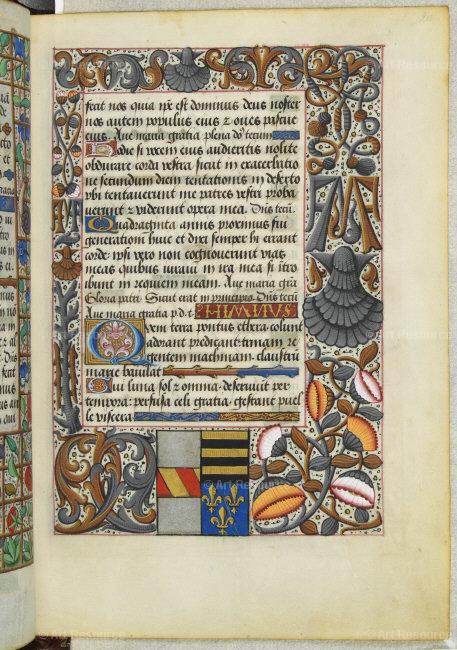 fecat nos quia ip̄e est dominus deus noster
nos autem populus eius ⁊ oues pascue
eius. Aue maria gratia plena dn̄s tecum
Hodie si vocem eius audieritis nolite
obdurare corda vestra sicut in exacerbatio
ne secundum diem tentationis in deserto
vbi tentauerunt me patres vestri proba
uerunt ⁊ viderunt opera mea. Dn̄s tecū.
Quadraginta annis proximus fui
generationi huic et dixi semper hi errant
corde ipsi vero non cognouerunt vias
meas quibus iuraui in ira mea si itro
ibunt in requiem meam. Aue maria grā
Gloria patri. Sicut erat in principio. Dn̄s tecū
Aue maria gratia p. d. t. HIMNVS
Quem terra pontus ethera colunt
adorant predicant: trinam re
gentem machinam. claustrū
marie baiulat
Cui luna sol ⁊ omnia. deseruūt per
tempora: perfusa celi gratia. gestant puel
le viscera
Art Resource